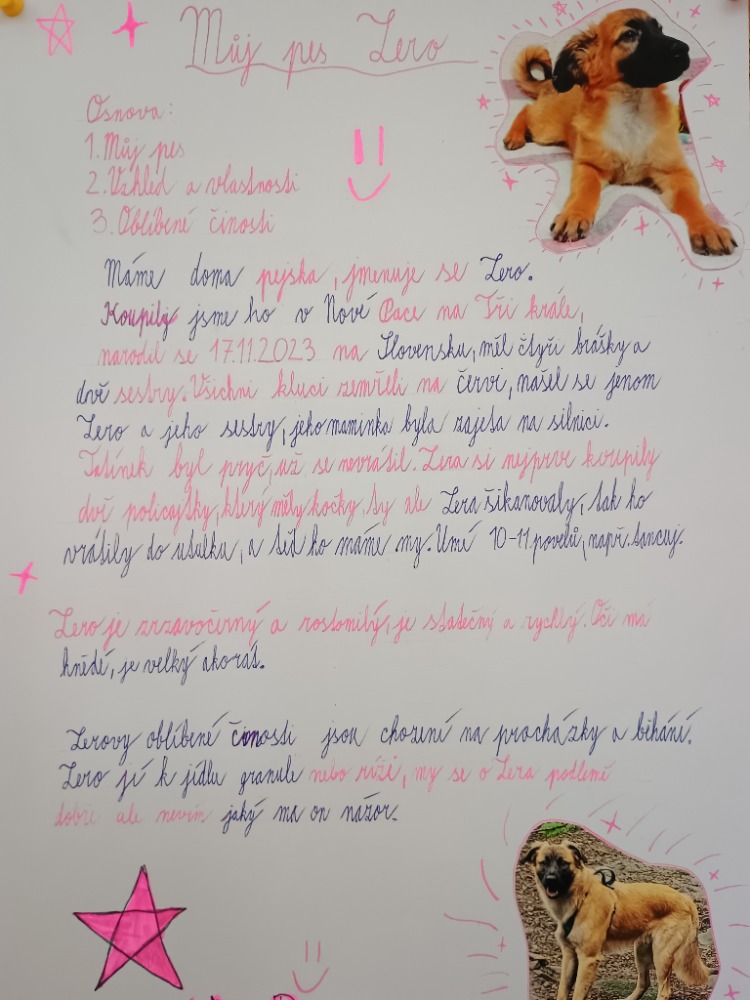 Můj pes Zero
Osnova:
1. Můj pes
2. Vzhled a vlastnosti
3. Oblíbené činosti
Máme doma pejska, jmenuje se Zero.
Koupily jsme ho v Nové Pace na Tři krále,
narodil se 17.11.2023 na Slovensku, měl čtyři brášky a
dvě sestry. Všichni kluci zemřeli na červi, našel se jenom
Zero a jeho sestry, jeho maminka byla zajeta na silnici.
Tatínek byl pryč, už se nevrátil. Zera si nejprve koupily
dvě policajtky, který měly kočky, ty ale Zera šikanovaly, tak ho
vrátily do utulku, a teď ho máme my. Umí 10-11 povelů, např. tancuj.
Zero je zrzavočerný a roztomilý, je statečný a rychlý. Oči má
hnědé, je velký akorát.
Zerovy oblíbené činosti jsou chození na procházky a běhání.
Zero jí k jídlu granule nebo rýži, my se o Zera podlemě
dobře ale nevím jaký ma on názor.